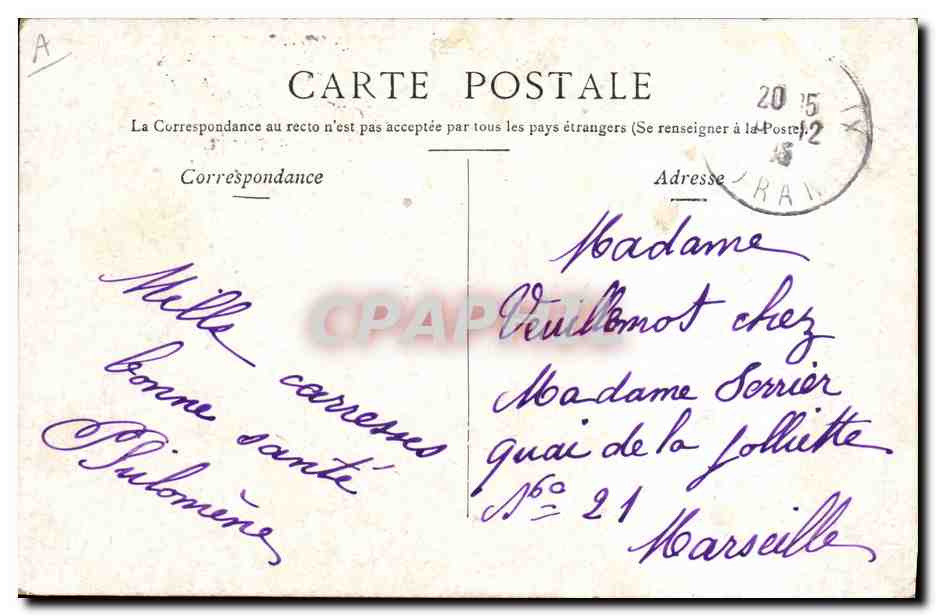 A
CARTE POSTALE
La Correspondance au recto n'est pas acceptée par tous les pays étrangers (Se renseigner à la Poste).
Correspondance
Mille carresses
bonne santé
Philomène
Adresse
Madame
Veuillemot chez
Madame Serrier
quai de la Jolliette
No 21
Marseille
CPAPHIL
20
12
ORAN